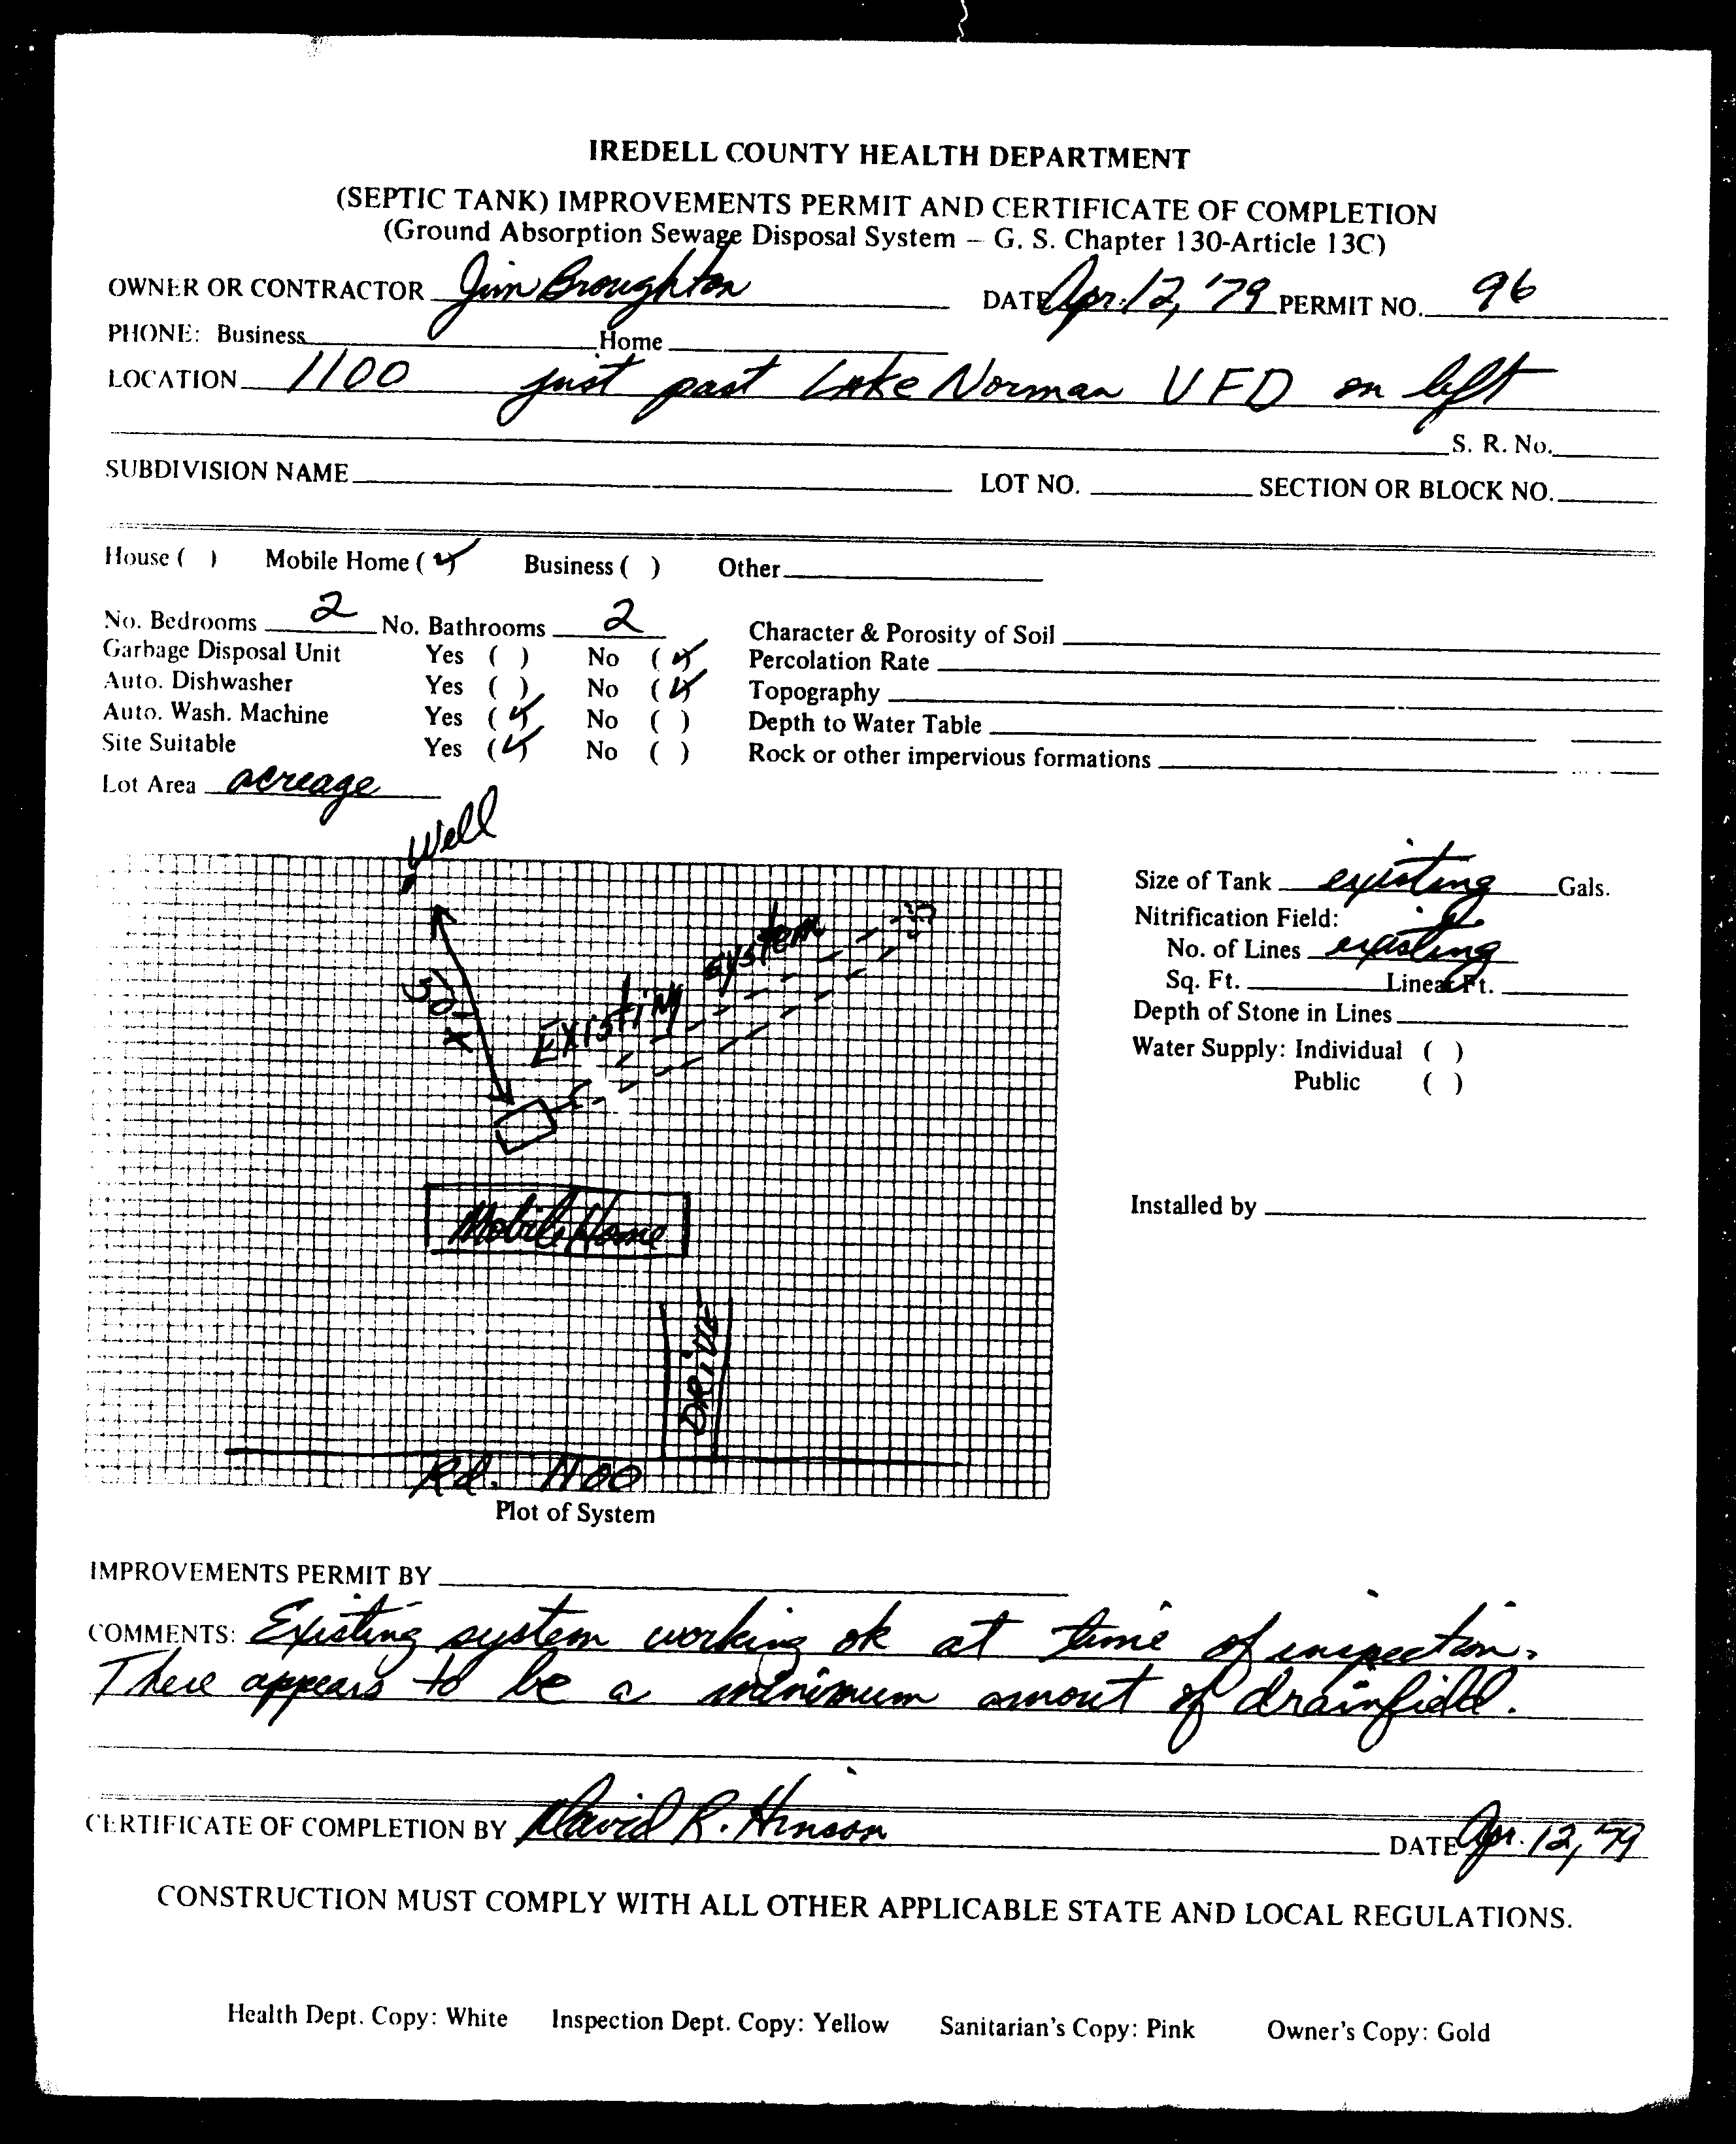 IREDELL COUNTY HEALTH DEPARTMENT
(SEPTIC TANK) IMPROVEMENTS PERMIT AND CERTIFICATE OF COMPLETION
(Ground Absorption Sewage Disposal System – G. S. Chapter 130-Article 13C)
OWNER OR CONTRACTOR Jim Broughton DATE Apr. 12, '79 PERMIT NO. 96
PHONE: Business Home
LOCATION 1100 just past Lake Norman VFD on left
S. R. No.
SUBDIVISION NAME LOT NO. SECTION OR BLOCK NO.
House ( ) Mobile Home (✓) Business ( ) Other
No. Bedrooms 2 No. Bathrooms 2 Character & Porosity of Soil
Garbage Disposal Unit Yes ( ) No (✓) Percolation Rate
Auto. Dishwasher Yes ( ) No (✓) Topography
Auto. Wash. Machine Yes (✓) No ( ) Depth to Water Table
Site Suitable Yes (✓) No ( ) Rock or other impervious formations
Lot Area acreage
Well
Size of Tank existing Gals.
Nitrification Field:
No. of Lines existing
Sq. Ft. Linear Ft.
Depth of Stone in Lines
Water Supply: Individual ( )
Public ( )
50'+
Existing system
Installed by
Mobile Home
DRIVE
Rd. 1100
Plot of System
IMPROVEMENTS PERMIT BY
COMMENTS: Existing system working ok at time of inspection.
There appears to be a minimum amout of drainfield.
CERTIFICATE OF COMPLETION BY David R. Hinson DATE Apr. 12, '79
CONSTRUCTION MUST COMPLY WITH ALL OTHER APPLICABLE STATE AND LOCAL REGULATIONS.
Health Dept. Copy: White Inspection Dept. Copy: Yellow Sanitarian's Copy: Pink Owner's Copy: Gold